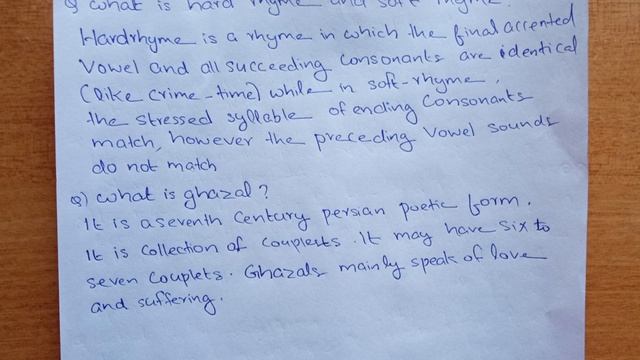 Q what is hard rhyme and soft rhyme?
Hardrhyme is a rhyme in which the final accented
Vowel and all succeeding consonants are identical
(like crime-time) while in soft-rhyme,
the stressed syllable of ending Consonants
match, however the preceding Vowel sounds
do not match
Q) what is ghazal?
It is a seventh Century persian poetic form.
It is Collection of Couplests. It may have six to
seven Couplets. Ghazals mainly speak of love
and suffering.